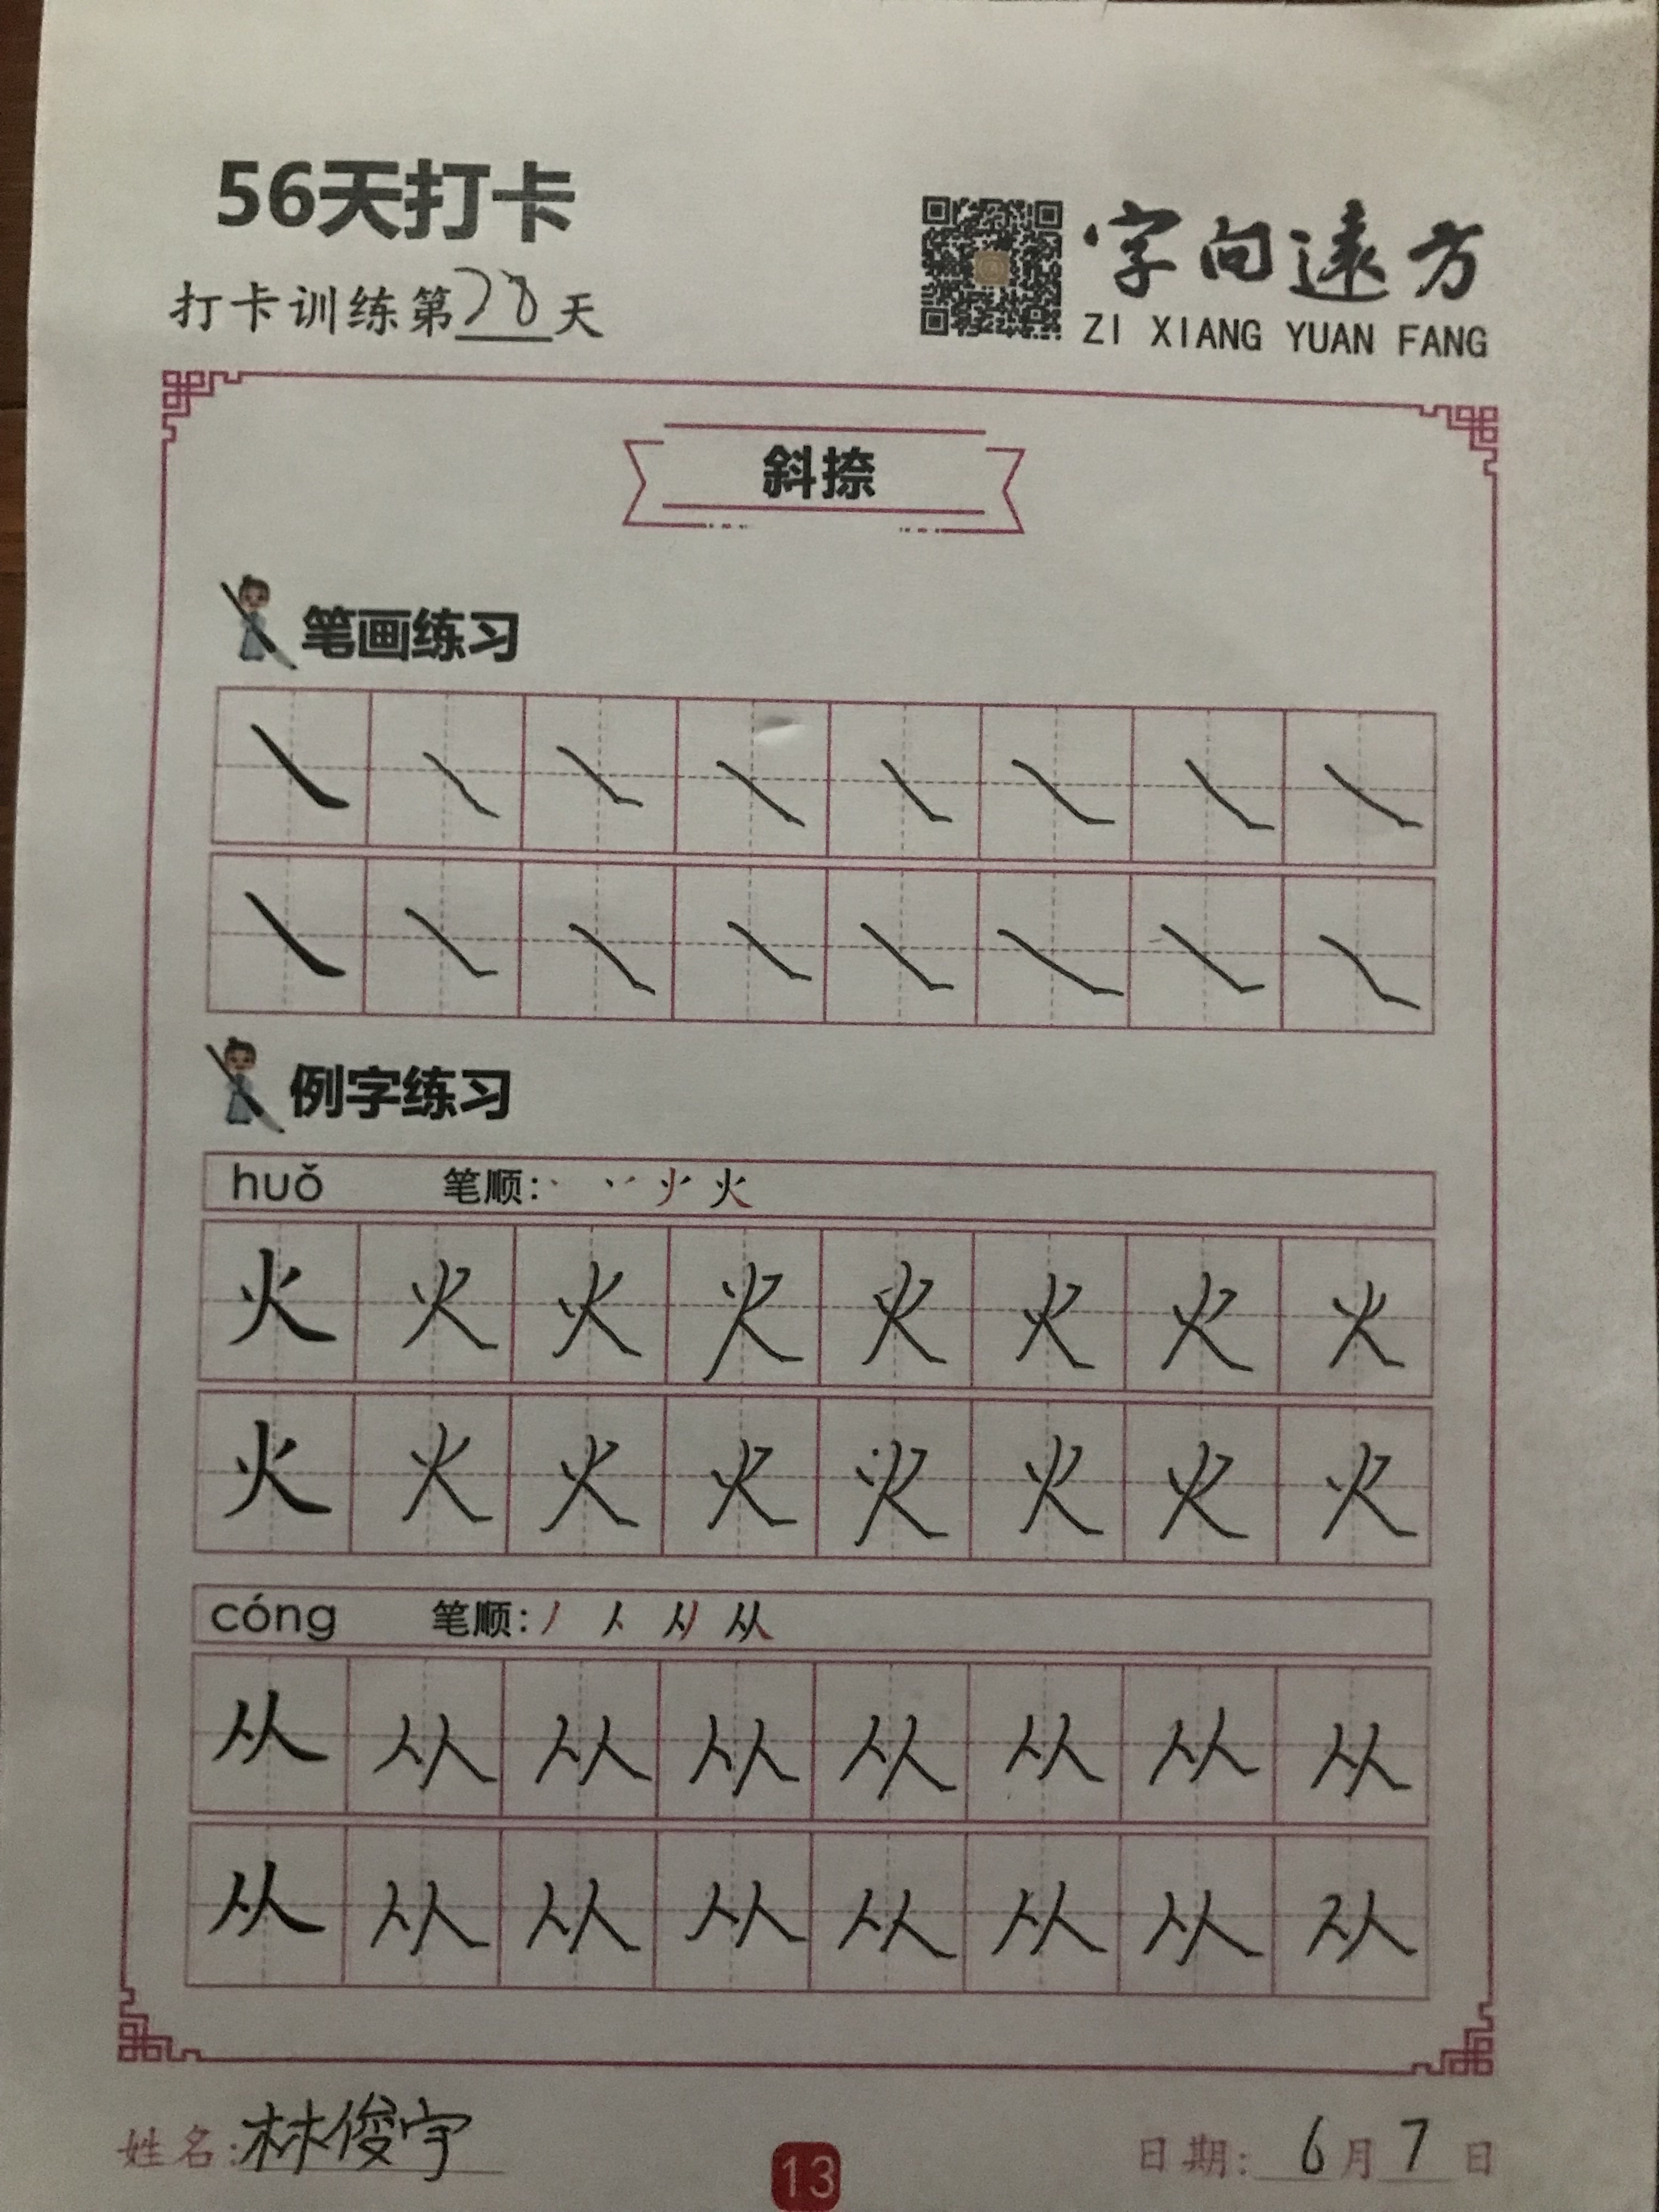 56天打卡
字向遠方
打卡训练第28天
ZI XIANG YUAN FANG
斜捺
笔画练习
例字练习
huǒ 笔顺：火
火 火 火 火 火 火 火 火
火 火 火 火 火 火 火 火
cóng 笔顺：丿 人 从
从 从 从 从 从 从 从 从
从 从 从 从 从 从 从 从
姓名:林俊宇
13
日期: 6月7日